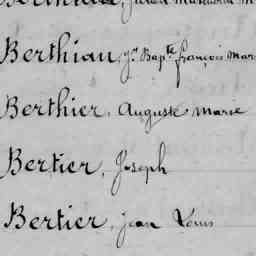 Berthiau, Jn Bapte françois Marie
Berthier, Auguste Marie
Bertier, Joseph
Bertier, jean Louis